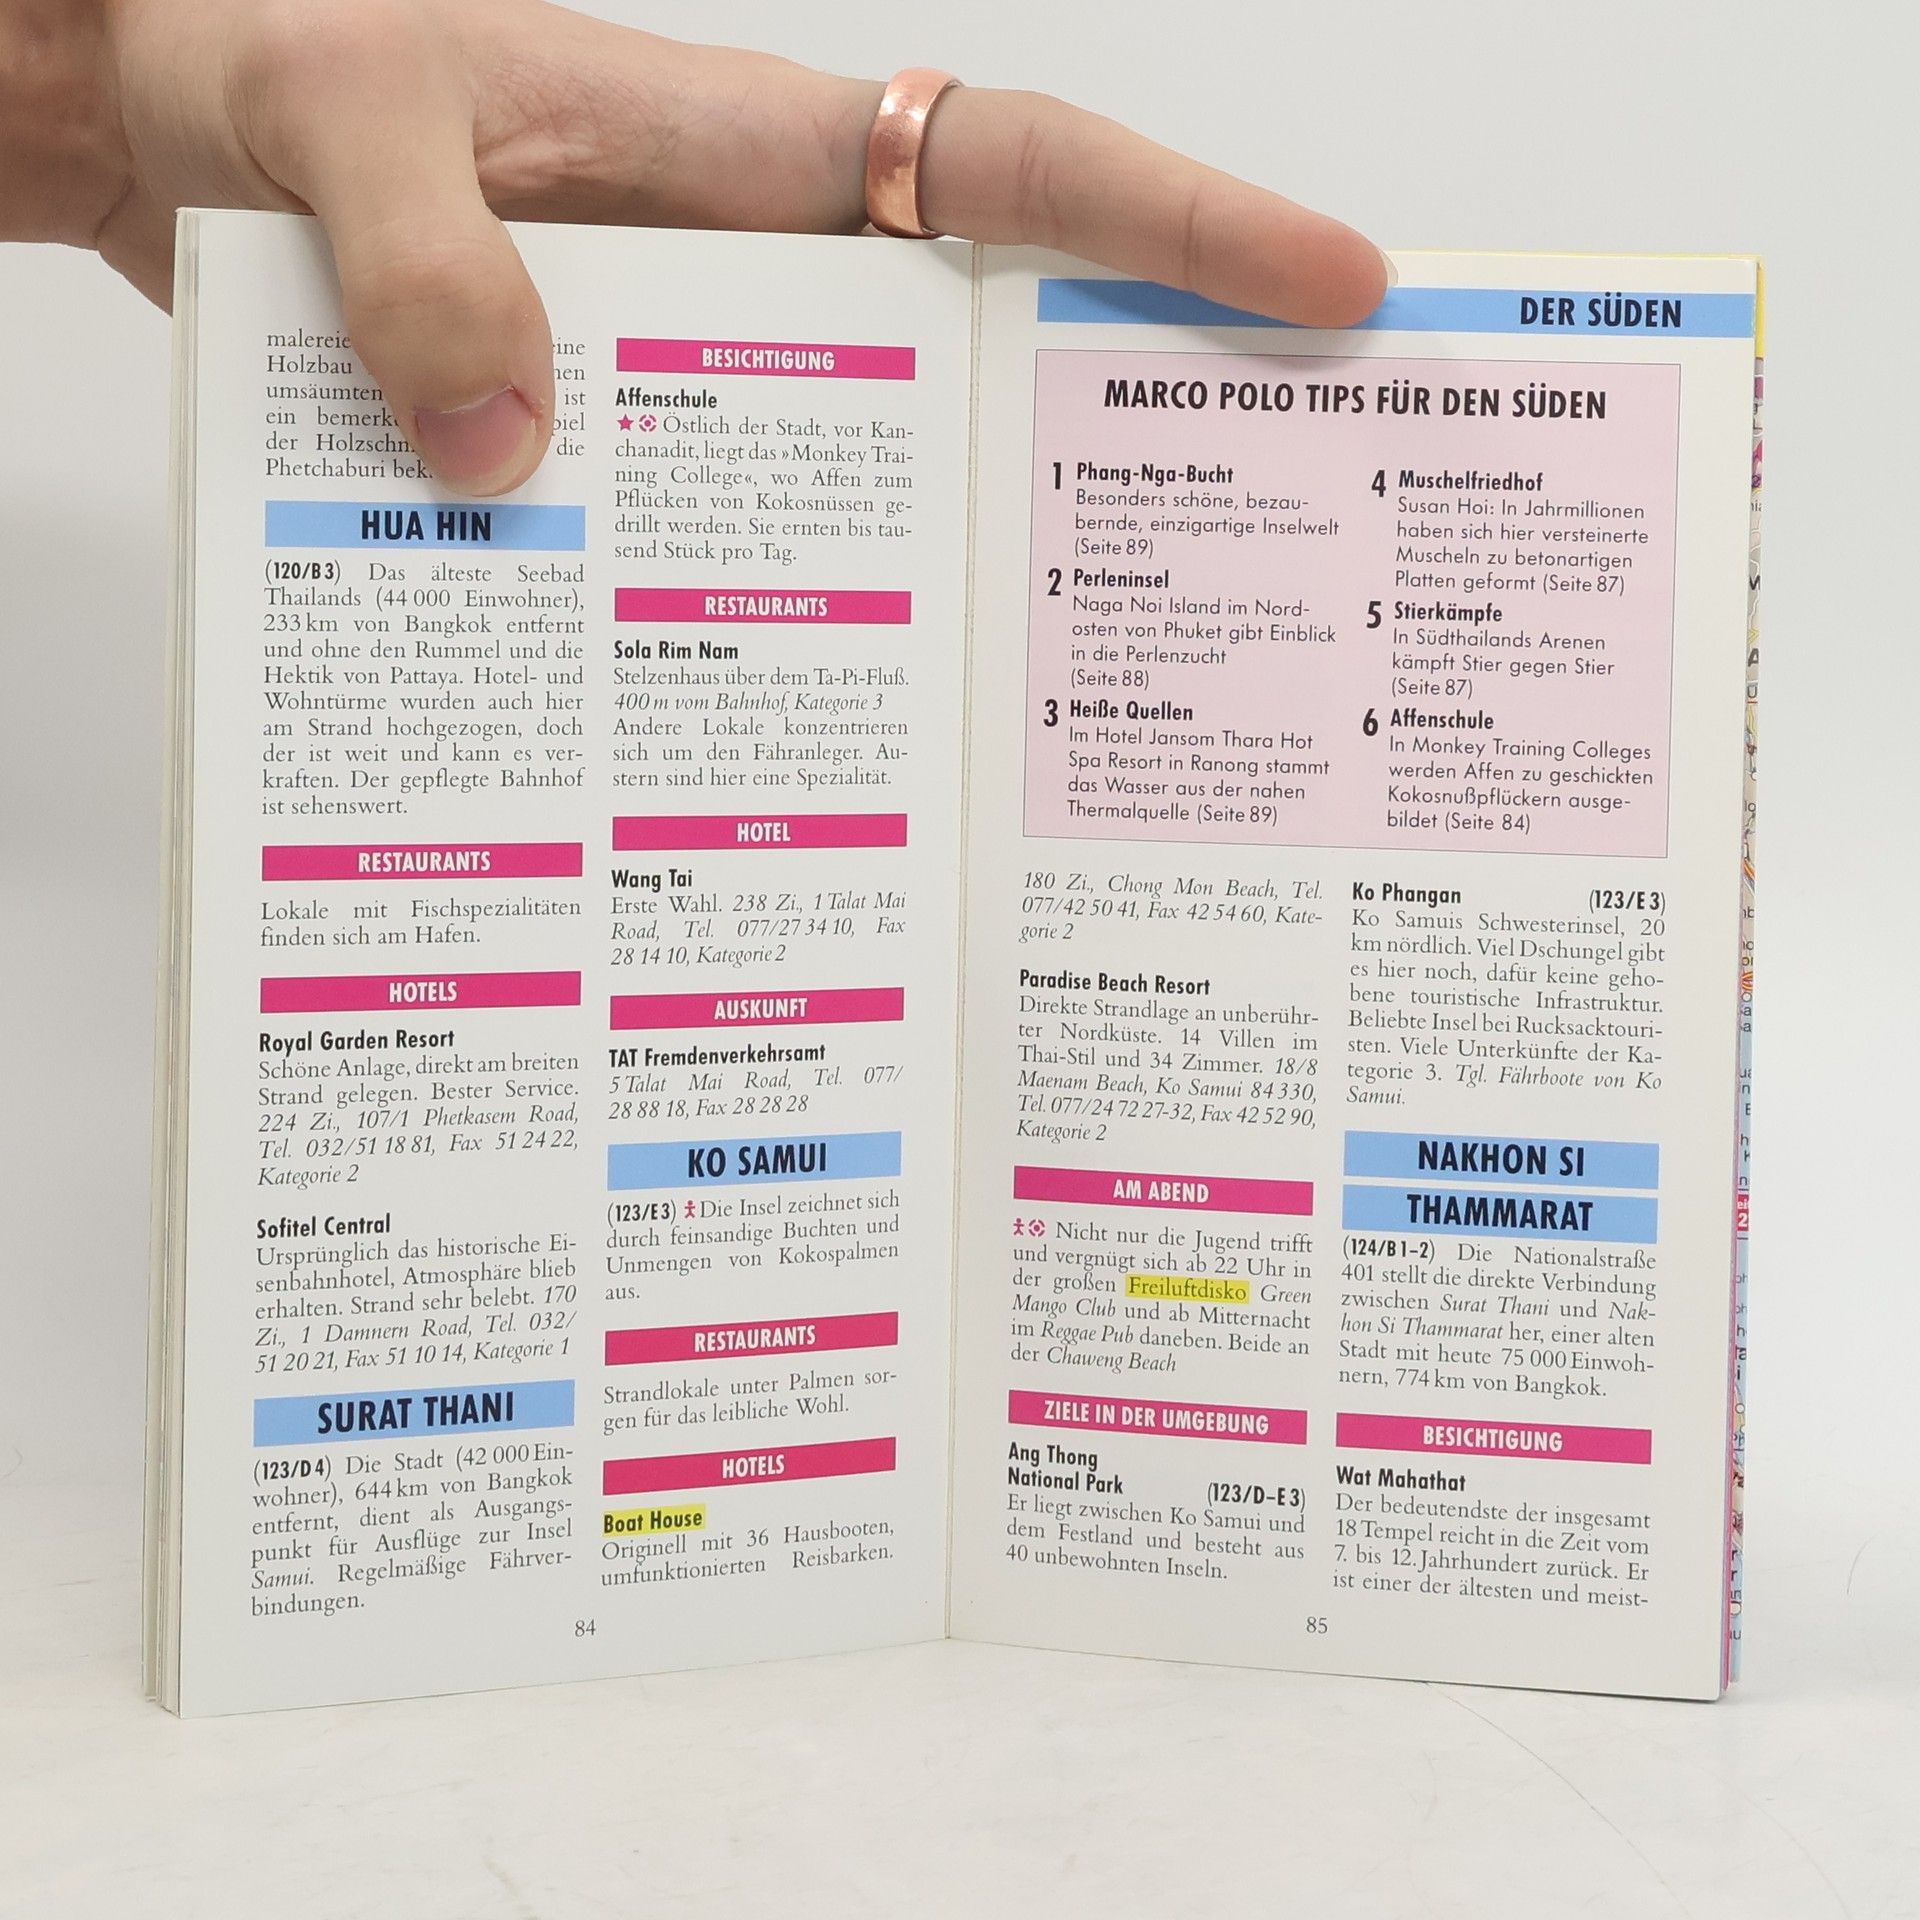 malereie
Holzbau
umsäumten ist
ein
der die
Phetchaburi
HUA HIN
(120/B 3) Das älteste Seebad
Thailands (44 000 Einwohner),
233 km von Bangkok entfernt
und ohne den Rummel und die
Hektik von Pattaya. Hotel- und
Wohntürme wurden auch hier
am Strand hochgezogen, doch
der ist weit und kann es ver-
kraften. Der gepflegte Bahnhof
ist sehenswert.
RESTAURANTS
Lokale mit Fischspezialitäten
finden sich am Hafen.
HOTELS
Royal Garden Resort
Schöne Anlage, direkt am breiten
Strand gelegen. Bester Service.
224 Zi., 107/1 Phetkasem Road,
Tel. 032/51 18 81, Fax 51 24 22,
Kategorie 2
Sofitel Central
Ursprünglich das historische Ei-
senbahnhotel, Atmosphäre blieb
erhalten. Strand sehr belebt. 170
Zi., 1 Damnern Road, Tel. 032/
51 20 21, Fax 51 10 14, Kategorie 1
SURAT THANI
(123/D 4) Die Stadt (42 000 Ein-
wohner), 644 km von Bangkok
entfernt, dient als Ausgangs-
punkt für Ausflüge zur Insel
Samui. Regelmäßige Fährver-
bindungen.
BESICHTIGUNG
Affenschule
Östlich der Stadt, vor Kan-
chanadit, liegt das »Monkey Trai-
ning College«, wo Affen zum
Pflücken von Kokosnüssen ge-
drillt werden. Sie ernten bis tau-
send Stück pro Tag.
RESTAURANTS
Sola Rim Nam
Stelzenhaus über dem Ta-Pi-Fluß.
400 m vom Bahnhof, Kategorie 3
Andere Lokale konzentrieren
sich um den Fähranleger. Au-
stern sind hier eine Spezialität.
HOTEL
Wang Tai
Erste Wahl. 238 Zi., 1 Talat Mai
Road, Tel. 077/27 34 10, Fax
28 14 10, Kategorie 2
AUSKUNFT
TAT Fremdenverkehrsamt
5 Talat Mai Road, Tel. 077/
28 88 18, Fax 28 28 28
KO SAMUI
(123/E 3) Die Insel zeichnet sich
durch feinsandige Buchten und
Unmengen von Kokospalmen
aus.
RESTAURANTS
Strandlokale unter Palmen sor-
gen für das leibliche Wohl.
HOTELS
Boat House
Originell mit 36 Hausbooten,
umfunktionierten Reisbarken.
84
DER SÜDEN
MARCO POLO TIPS FÜR DEN SÜDEN
1 Phang-Nga-Bucht
Besonders schöne, bezau-
bernde, einzigartige Inselwelt
(Seite 89)
2 Perleninsel
Naga Noi Island im Nord-
osten von Phuket gibt Einblick
in die Perlenzucht
(Seite 88)
3 Heiße Quellen
Im Hotel Jansom Thara Hot
Spa Resort in Ranong stammt
das Wasser aus der nahen
Thermalquelle (Seite 89)
4 Muschelfriedhof
Susan Hoi: In Jahrmillionen
haben sich hier versteinerte
Muscheln zu betonartigen
Platten geformt (Seite 87)
5 Stierkämpfe
In Südthailands Arenen
kämpft Stier gegen Stier
(Seite 87)
6 Affenschule
In Monkey Training Colleges
werden Affen zu geschickten
Kokosnußpflückern ausge-
bildet (Seite 84)
180 Zi., Chong Mon Beach, Tel.
077/42 50 41, Fax 42 54 60, Kate-
gorie 2
Paradise Beach Resort
Direkte Strandlage an unberühr-
ter Nordküste. 14 Villen im
Thai-Stil und 34 Zimmer. 18/8
Maenam Beach, Ko Samui 84 330,
Tel. 077/24 72 27-32, Fax 42 52 90,
Kategorie 2
AM ABEND
Nicht nur die Jugend trifft
und vergnügt sich ab 22 Uhr in
der großen Freiluftdisko Green
Mango Club und ab Mitternacht
im Reggae Pub daneben. Beide an
der Chaweng Beach
ZIELE IN DER UMGEBUNG
Ang Thong
National Park (123/D–E 3)
Er liegt zwischen Ko Samui und
dem Festland und besteht aus
40 unbewohnten Inseln.
Ko Phangan (123/E 3)
Ko Samuis Schwesterinsel, 20
km nördlich. Viel Dschungel gibt
es hier noch, dafür keine geho-
bene touristische Infrastruktur.
Beliebte Insel bei Rucksacktouri-
sten. Viele Unterkünfte der Ka-
tegorie 3. Tgl. Fährboote von Ko
Samui.
NAKHON SI
THAMMARAT
(124/B 1–2) Die Nationalstraße
401 stellt die direkte Verbindung
zwischen Surat Thani und Nak-
hon Si Thammarat her, einer alten
Stadt mit heute 75 000 Einwoh-
nern, 774 km von Bangkok.
BESICHTIGUNG
Wat Mahathat
Der bedeutendste der insgesamt
18 Tempel reicht in die Zeit vom
7. bis 12. Jahrhundert zurück. Er
ist einer der ältesten und meist-
85